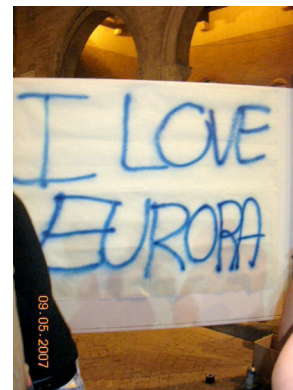 I LOVE
EURORA
09.05.2007